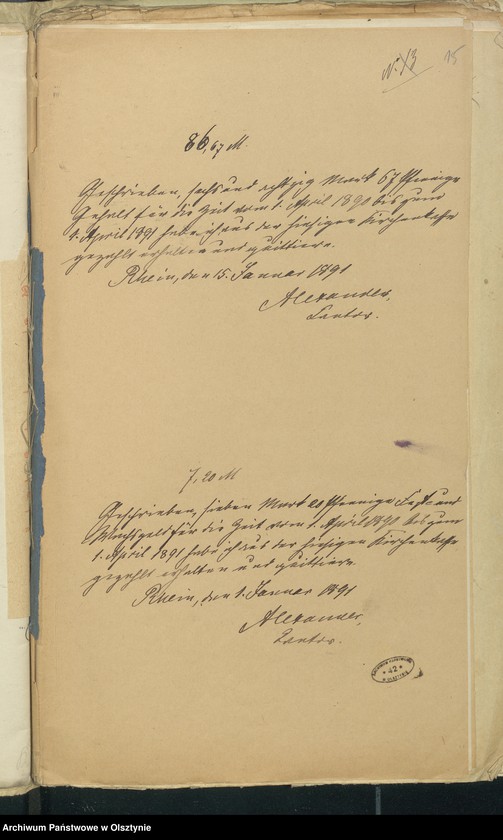 No. 13
15
86,67 M.
Geschrieben, sechs und achtzig Mark 67 Pfennige
Gehalt für die Zeit vom 1. April 1890 bis zum
1. April 1891 habe ich aus der hiesigen Kirchenkasse
gezahlt erhalten und quittiere.
Rhein, den 15. Januar 1891
Alexander,
Cantor.
7,20 M
Geschrieben, sieben Mark 20 Pfennige und
für die Zeit vom 1. April 1890 bis zum
1. April 1891 habe ich aus der hiesigen Kirchenkasse
gezahlt erhalten und quittiere.
Rhein, den 1. Januar 1891
Alexander,
Cantor.
* 42 *
Archiwum Państwowe w Olsztynie